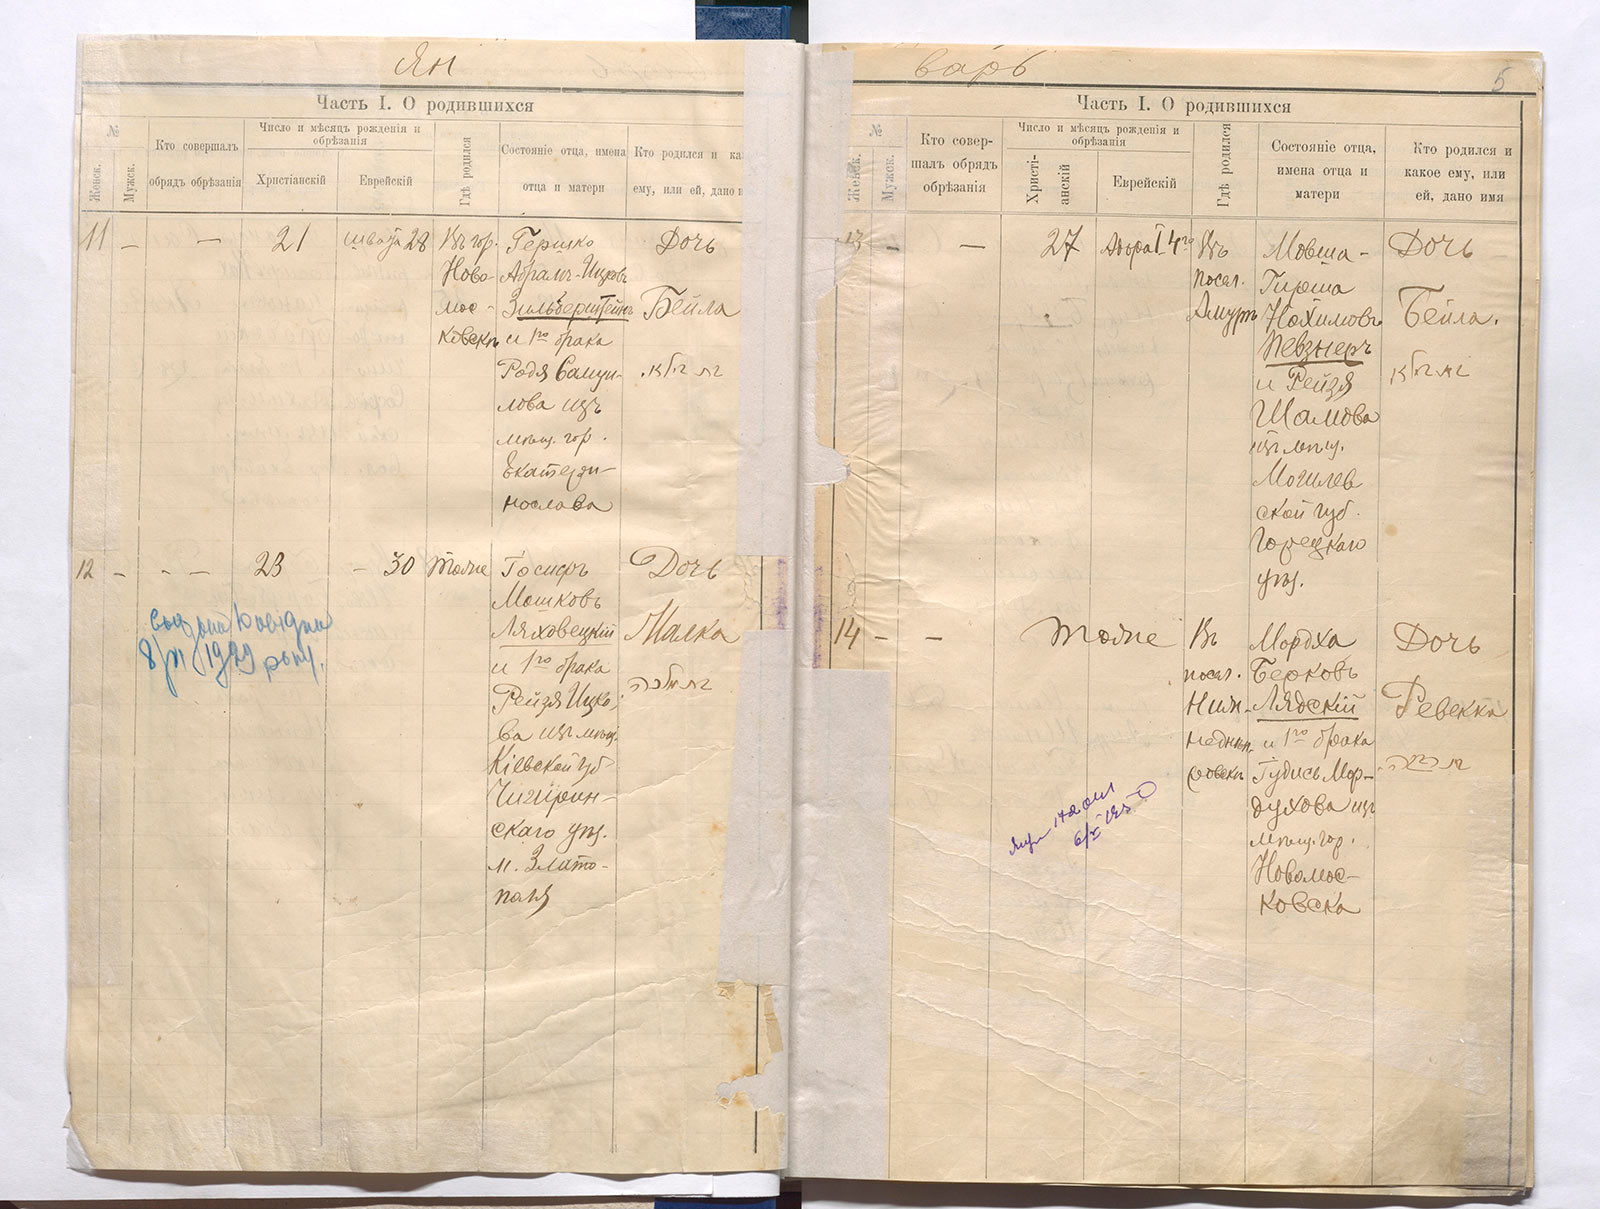 Ян
варь
5
Часть I. О родившихся
№
Женск.
Мужск.
Кто совершалъ
обрядъ обрѣзанія
Число и мѣсяцъ рожденія и
обрѣзанія
Христіанскій
Еврейскій
Гдѣ родился
Состояніе отца, имена
отца и матери
Кто родился и ка
ему, или ей, дано и
11 – – 21 28
Въ гор.
Ново-
мос-
ковскѣ
Гершко
Абрамъ-Ицковъ
Зильберштейнъ
и 1го брака
Родя Самуи-
лова изъ
мѣщ. гор.
Екатери-
нослава
Дочь
Бейла
12 – – – 23 – 30
тоже
Іосифъ
Мошковъ
Ляховецкій
и 1го брака
Рейзя Ицко-
ва изъ мѣщ.
Кіевской губ
Чигирин-
скаго уѣз.
м. Злато-
поля
Дочь
Малка
1929 року.
Часть I. О родившихся
№
Женск.
Мужск.
Кто совер-
шалъ обрядъ
обрѣзанія
Число и мѣсяцъ рожденія и
обрѣзанія
Христі-
анскій
Еврейскій
Гдѣ родился
Состояніе отца,
имена отца и
матери
Кто родился и
какое ему, или
ей, дано имя
13 – – 27
Въ
посел.
Амуръ
Мовша-
Гирша
Нохимовъ
Певзнеръ
и Рейзя
Шамова
изъ мѣщ.
Могилев
ской губ.
Горецкаго
уѣз.
Дочь
Бейла.
14 – –
тоже
Въ
посел.
Ниж-
недни-
провск
Мордха
Берковъ
Лядскій
и 1го брака
Гудись Мор-
духова изъ
мѣщ. гор.
Новомос-
ковска
Дочь
Ревекка